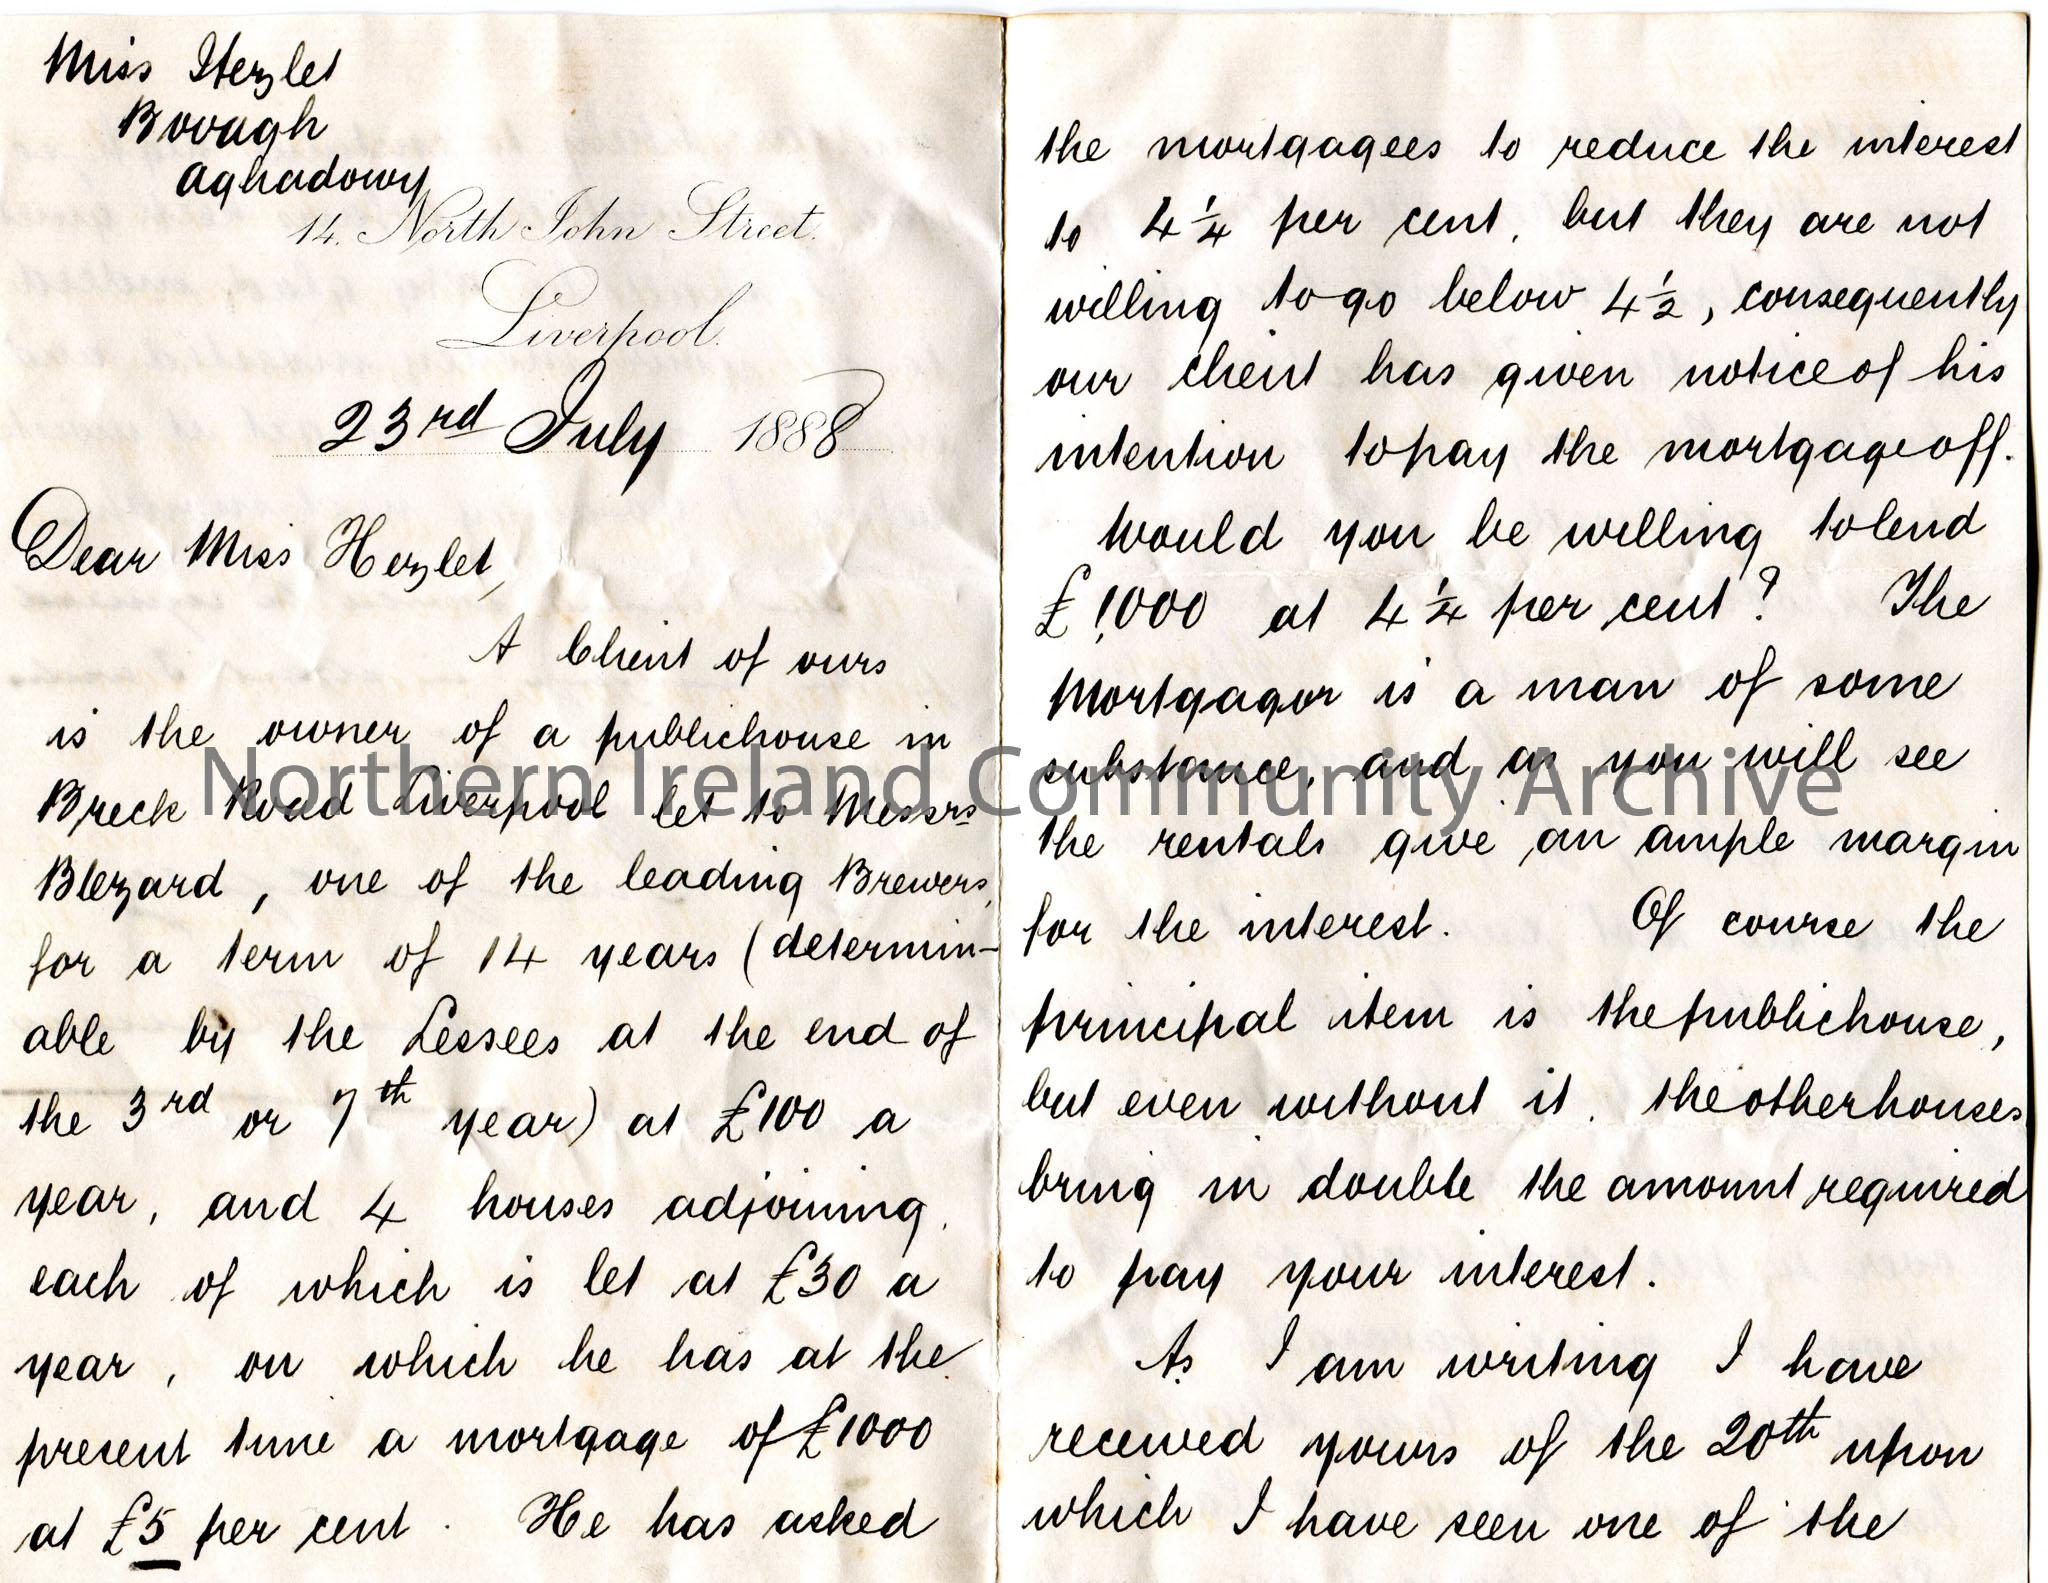 Miss Hezlet
Bovagh
Aghadowy
14. North John Street.
Liverpool.
23rd July 1888
Dear Miss Hezlet,
A Client of ours
is the owner of a publichouse in
Breck Road Liverpool let to Messrs
Blezard, one of the leading Brewers,
for a term of 14 years (determin-
able by the Lessees at the end of
the 3rd or 7th year) at £100 a
year, and 4 houses adjoining,
each of which is let at £30 a
year, on which he has at the
present time a mortgage of £1000
at £5 per cent. He has asked
the mortgagees to reduce the interest
to 4¼ per cent, but they are not
willing to go below 4½, consequently
our client has given notice of his
intention to pay the mortgage off.
Would you be willing to lend
£1,000 at 4¼ per cent? The
Mortgagor is a man of some
substance, and as you will see
the rentals give an ample margin
for the interest. Of course the
principal item is the publichouse,
but even without it, the other houses
bring in double the amount required
to pay your interest.
As I am writing I have
received yours of the 20th upon
which I have seen one of the
Northern Ireland Community Archive